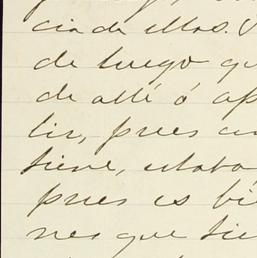 cia de ellas.
de luego qu
de allí ó ap
tir, pues
tiene, estaba
pues es bi
nes que tie